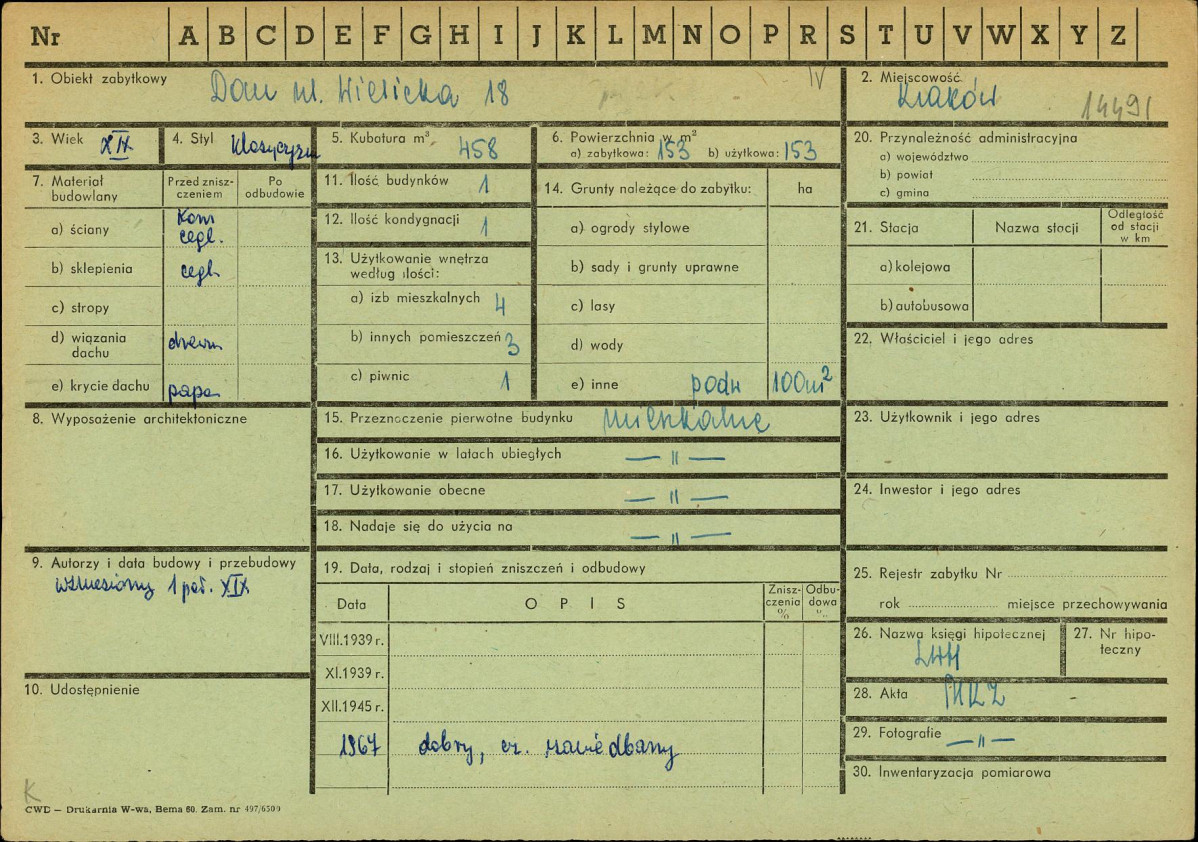 Nr A B C D E F G H I J K L M N O P R S T U V W X Y Z
1. Obiekt zabytkowy Dom ul. Wielicka 18 IV
2. Miejscowość Kraków 14491
3. Wiek XIX
4. Styl klasycyzm
5. Kubatura m³ 458
6. Powierzchnia w m²
a) zabytkowa: 153 b) użytkowa: 153
7. Materiał budowlany
Przed znisz-
czeniem
Po
odbudowie
a) ściany Kam
cegl.
b) sklepienia cegl.
c) stropy
d) wiązania
dachu drewn
e) krycie dachu papa
8. Wyposażenie architektoniczne
9. Autorzy i data budowy i przebudowy
wzniesiony 1 poł. XIX
10. Udostępnienie
11. Ilość budynków 1
12. Ilość kondygnacji 1
13. Użytkowanie wnętrza
według ilości:
a) izb mieszkalnych 4
b) innych pomieszczeń 3
c) piwnic 1
14. Grunty należące do zabytku: ha
a) ogrody stylowe
b) sady i grunty uprawne
c) lasy
d) wody
e) inne podw 100m²
15. Przeznaczenie pierwotne budynku mieszkalne
16. Użytkowanie w latach ubiegłych — " —
17. Użytkowanie obecne — " —
18. Nadaje się do użycia na — " —
19. Data, rodzaj i stopień zniszczeń i odbudowy
Data OPIS
Znisz-
czenia
%
Odbu-
dowa
%
VIII.1939 r.
XI.1939 r.
XII.1945 r.
1967 dobry, cz. zaniedbany
20. Przynależność administracyjna
a) województwo
b) powiat
c) gmina
21. Stacja Nazwa stacji
Odległość
od stacji
w km
a) kolejowa
b) autobusowa
22. Właściciel i jego adres
23. Użytkownik i jego adres
24. Inwestor i jego adres
25. Rejestr zabytku Nr
rok miejsce przechowywania
26. Nazwa księgi hipotecznej
27. Nr hipo-
teczny
28. Akta MKZ
29. Fotografie — " —
30. Inwentaryzacja pomiarowa
K
CWD — Drukarnia W-wa, Bema 60. Zam. nr 497/6509